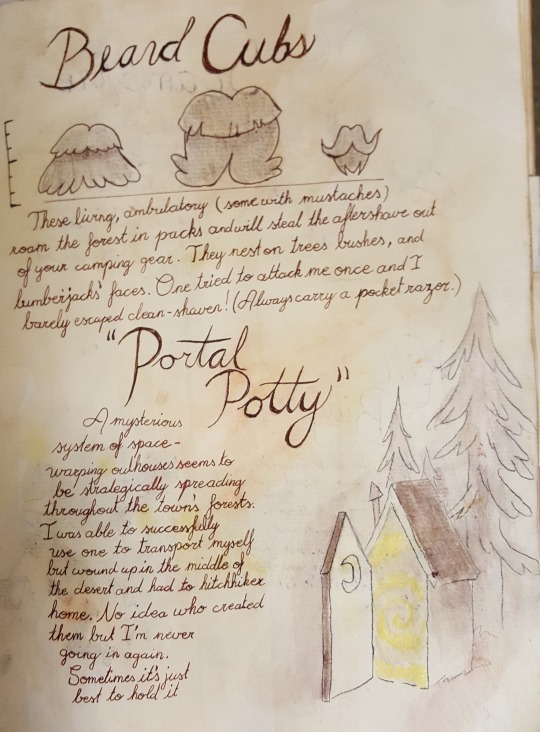 Beard Cubs
These living, ambulatory (some with mustaches)
roam the forest in packs and will steal the aftershave out
of your camping gear. They nest on trees bushes, and
lumberjacks' faces. One tried to attack me once and I
barely escaped clean-shaven! (Always carry a pocket razor.)
"Portal
Potty"
A mysterious
system of space-
warping outhouses seems to
be strategically spreading
throughout the town's forests.
I was able to successfully
use one to transport myself
but wound up in the middle of
the desert and had to hitchhiker
home. No idea who created
them but I'm never
going in again.
Sometimes it's just
best to hold it